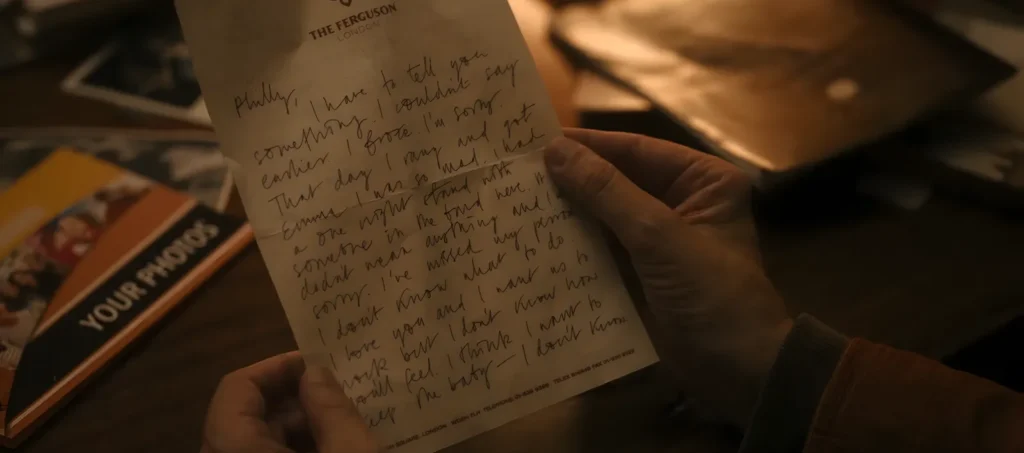 THE FERGUSON
LONDON
Philly, I have to tell you
something. I couldn't say
earlier I froze. I'm sorry
That day I rang and got
Emma I was so mad. I had
a one night stand with
someone in the band here. It
didn't mean anything and I'm
sorry. I've missed my period
I don't know what to do. I
love you and I want us to
work but I don't know how
you'll feel. I think I want to
keep the baby — I don't know
SQUARE · LONDON
YOUR PHOTOS